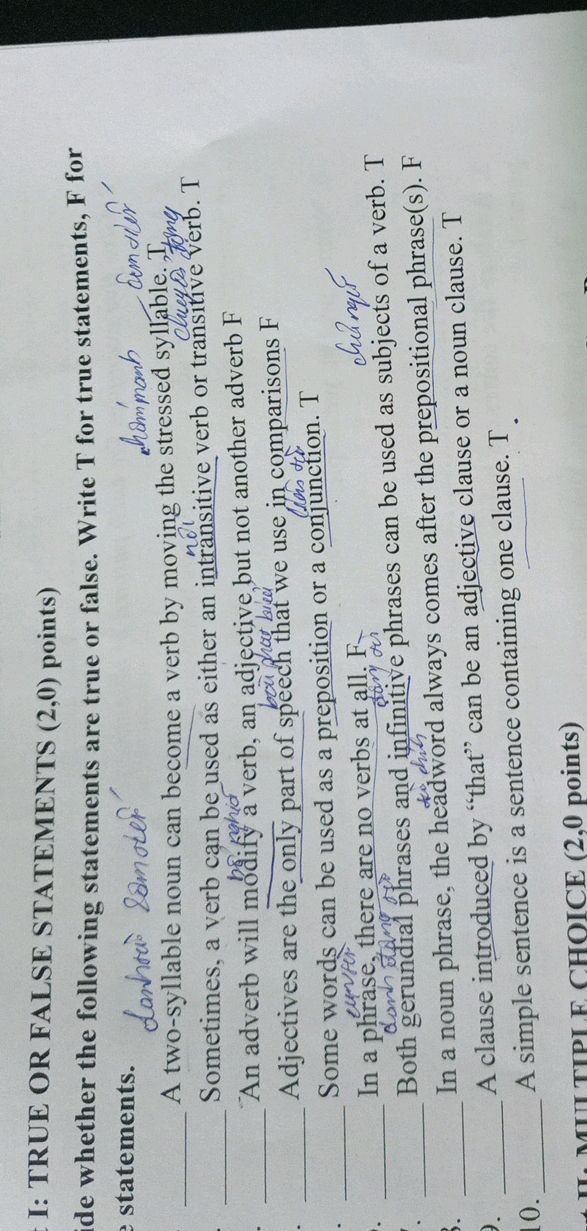 I: TRUE OR FALSE STATEMENTS (2,0) points)
ide whether the following statements are true or false. Write T for true statements, F for
e statements.
A two-syllable noun can become a verb by moving the stressed syllable. T
Sometimes, a verb can be used as either an intransitive verb or transitive verb. T
nội
An adverb will modify a verb, an adjective but not another adverb F
bổ nghĩa
Adjectives are the only part of speech that we use in comparisons F
Some words can be used as a preposition or a conjunction. T
liên từ
In a phrase, there are no verbs at all. F
Both gerundial phrases and infinitive phrases can be used as subjects of a verb. T
danh động từ
chủ ngữ
In a noun phrase, the headword always comes after the prepositional phrase(s). F
A clause introduced by “that” can be an adjective clause or a noun clause. T
10. A simple sentence is a sentence containing one clause. T
II: MULTIPLE CHOICE (2.0 points)